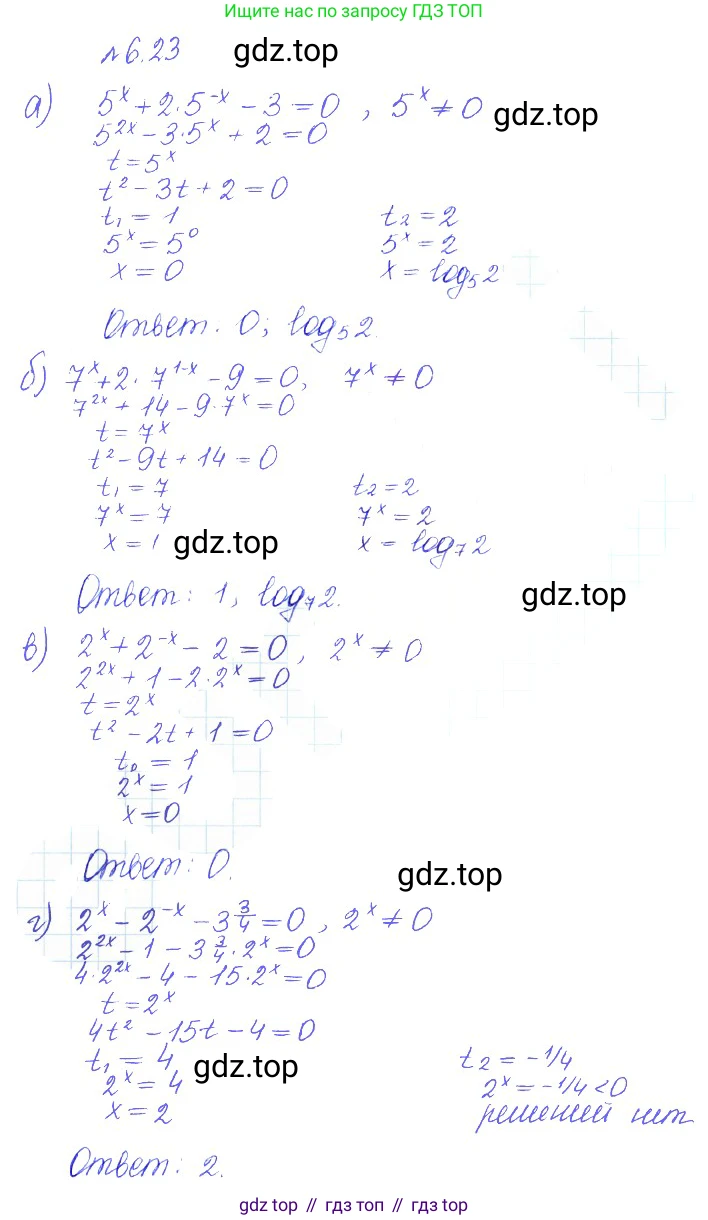 Ищите нас по запросу ГДЗ ТОП
№6.23 gdz.top
а) 5^x + 2·5^{-x} - 3 = 0 , 5^x ≠ 0 gdz.top
5^{2x} - 3·5^x + 2 = 0
t = 5^x
t² - 3t + 2 = 0
t₁ = 1 t₂ = 2
5^x = 5^0 5^x = 2
x = 0 x = log₅2
Ответ. 0; log₅2.
б) 7^x + 2·7^{1-x} - 9 = 0, 7^x ≠ 0
7^{2x} + 14 - 9·7^x = 0
t = 7^x
t² - 9t + 14 = 0
t₁ = 7 t₂ = 2
7^x = 7 7^x = 2
x = 1 gdz.top x = log₇2
Ответ: 1, log₇2. gdz.top
в) 2^x + 2^{-x} - 2 = 0, 2^x ≠ 0
2^{2x} + 1 - 2·2^x = 0
t = 2^x
t² - 2t + 1 = 0
t₀ = 1
2^x = 1
x = 0
Ответ: 0. gdz.top
г) 2^x - 2^{-x} - 3 3/4 = 0, 2^x ≠ 0
2^{2x} - 1 - 3 3/4·2^x = 0
4·2^{2x} - 4 - 15·2^x = 0
t = 2^x
4t² - 15t - 4 = 0
t₁ = 4 gdz.top t₂ = -1/4
2^x = 4 2^x = -1/4 < 0
x = 2 решений нет
Ответ: 2.
gdz top // гдз топ // гдз top